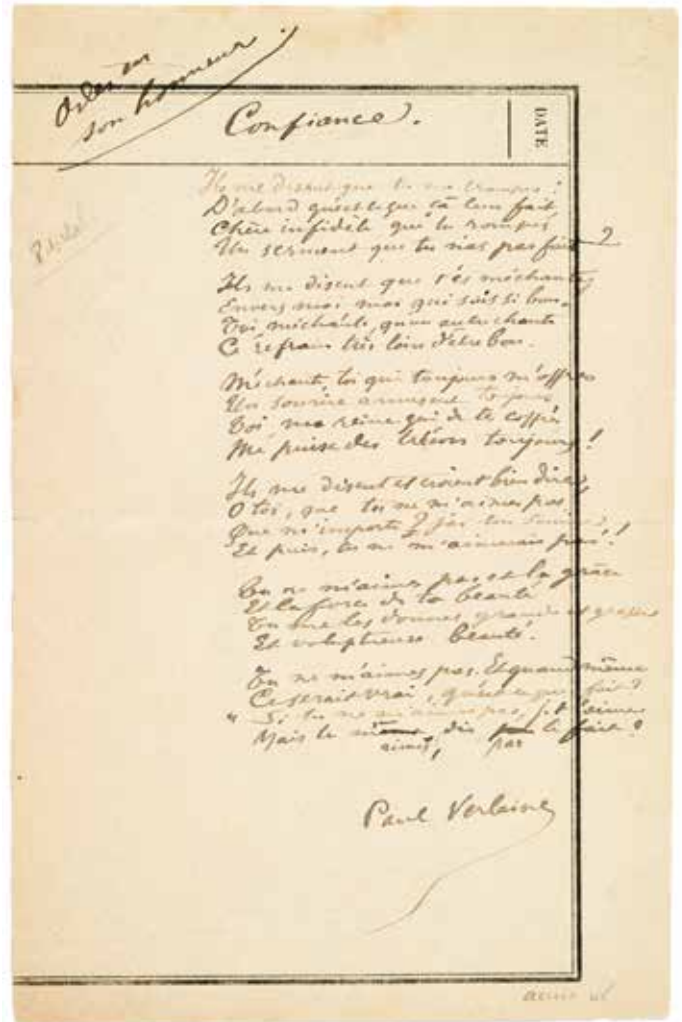 Odes en
son honneur.
Confiance.
DATE
Ils me disent que tu me trompes :
D'abord qu'est-ce que ça leur fait
Chère infidèle que tu rompes
Un serment que tu n'as pas fait ?
Ils me disent que t'es méchante
Envers moi moi qui suis si bon.
Toi méchante, qu'un autre chante
Ce refrain très loin d'être bon.
Méchante, toi qui toujours m'offres
Un sourire amusant toujours
Toi ma reine qui de tes coffres
Me puise des trésors toujours !
Ils me disent et croient bien dire,
O toi, que tu ne m'aimes pas
Que m'importe ? j'ai ton sourire,
Et puis, tu ne m'aimerais pas !
Tu ne m'aimes pas et la grâce
Et la force de ta beauté
Tu me les donnes, grande et grasse
Et voluptueuse beauté.
Tu ne m'aimes pas. Et quand même
Ce serait vrai, qu'est-ce que fait ?
" Si tu ne m'aimes pas, j't'aime
Mais tu dis le fait !
aimes, par
Paul Verlaine